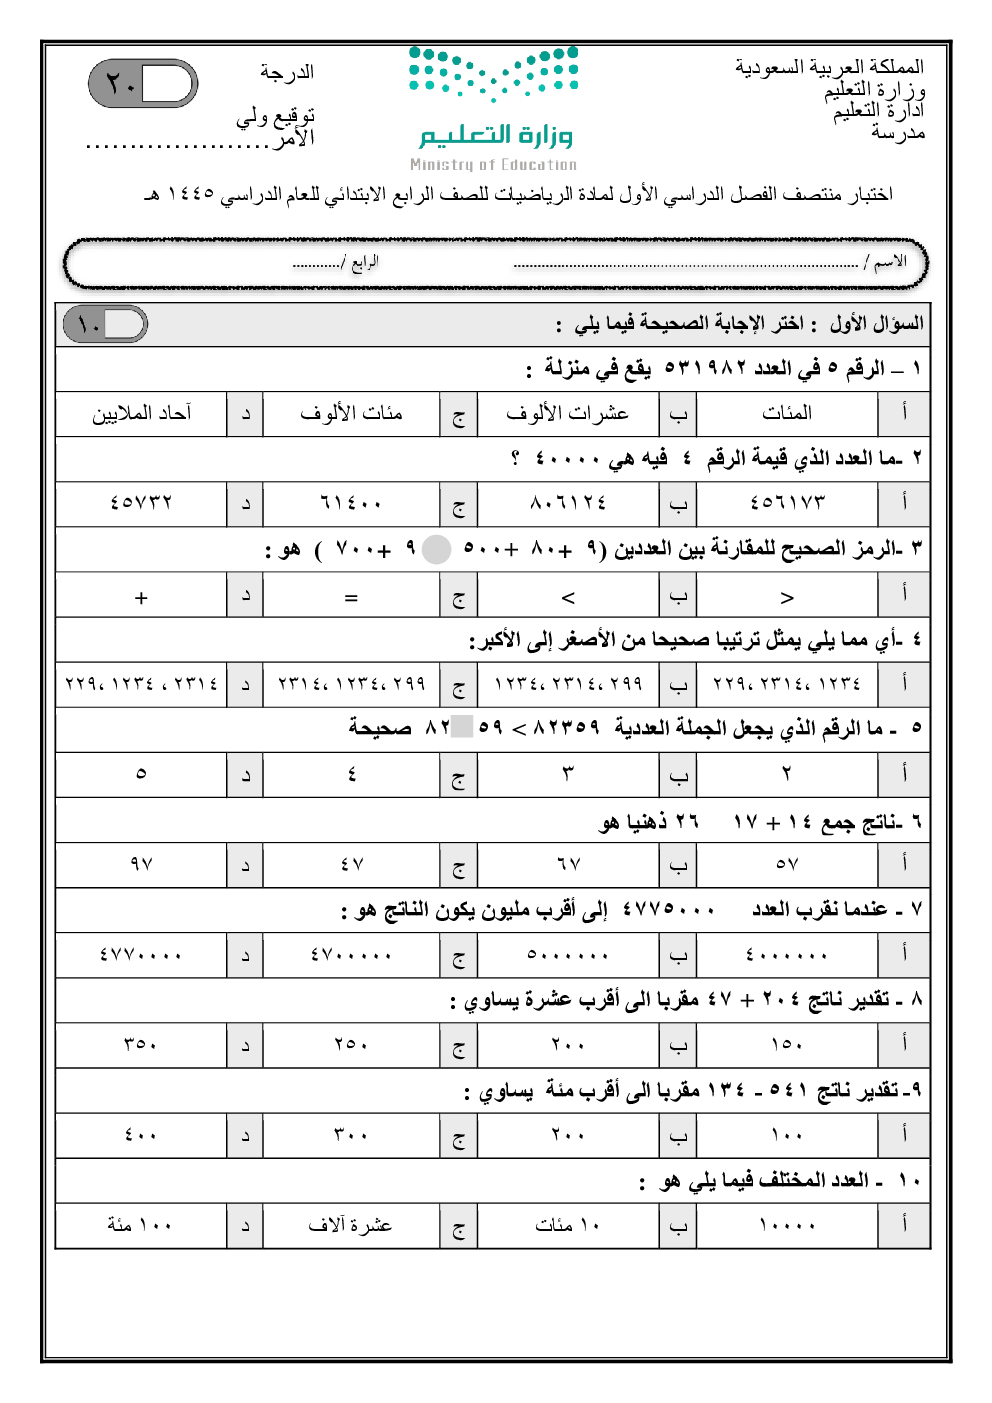 المملكة العربية السعودية
وزارة التعليم
ادارة التعليم
مدرسة
وزارة التعليم
Ministry of Education
الدرجة
٢٠
توقيع ولي
الأمر.....................
اختبار منتصف الفصل الدراسي الأول لمادة الرياضيات للصف الرابع الابتدائي للعام الدراسي ١٤٤٥ هـ
الاسم / ........................................................................ الرابع /...........
السؤال الأول : اختر الإجابة الصحيحة فيما يلي : ١٠
١ – الرقم ٥ في العدد ٥٣١٩٨٢ يقع في منزلة :
أ المئات ب عشرات الألوف ج مئات الألوف د آحاد الملايين
٢ -ما العدد الذي قيمة الرقم ٤ فيه هي ٤٠٠٠٠ ؟
أ ٤٥٦١٧٣ ب ٨٠٦١٢٤ ج ٦١٤٠٠ د ٤٥٧٣٢
٣ -الرمز الصحيح للمقارنة بين العددين (٩ +٨٠ +٥٠٠ ٩ +٧٠٠ ) هو :
أ < ب > ج = د +
٤ -أي مما يلي يمثل ترتيبا صحيحا من الأصغر إلى الأكبر:
أ ١٢٣٤ ،٢٣١٤ ،٢٢٩ ب ٢٩٩ ،٢٣١٤ ،١٢٣٤ ج ٢٩٩ ،١٢٣٤ ،٢٣١٤ د ٢٣١٤ ، ١٢٣٤ ،٢٢٩
٥ - ما الرقم الذي يجعل الجملة العددية ٨٢٣٥٩ > ٥٩ ٨٢ صحيحة
أ ٢ ب ٣ ج ٤ د ٥
٦ -ناتج جمع ١٤ + ١٧ ٢٦ ذهنيا هو
أ ٥٧ ب ٦٧ ج ٤٧ د ٩٧
٧ - عندما نقرب العدد ٤٧٧٥٠٠٠ إلى أقرب مليون يكون الناتج هو :
أ ٤٠٠٠٠٠٠ ب ٥٠٠٠٠٠٠ ج ٤٧٠٠٠٠٠ د ٤٧٧٠٠٠٠
٨ - تقدير ناتج ٢٠٤ + ٤٧ مقربا الى أقرب عشرة يساوي :
أ ١٥٠ ب ٢٠٠ ج ٢٥٠ د ٣٥٠
٩- تقدير ناتج ٥٤١ - ١٣٤ مقربا الى أقرب مئة يساوي :
أ ١٠٠ ب ٢٠٠ ج ٣٠٠ د ٤٠٠
١٠ - العدد المختلف فيما يلي هو :
أ ١٠٠٠٠ ب ١٠ مئات ج عشرة آلاف د ١٠٠ مئة